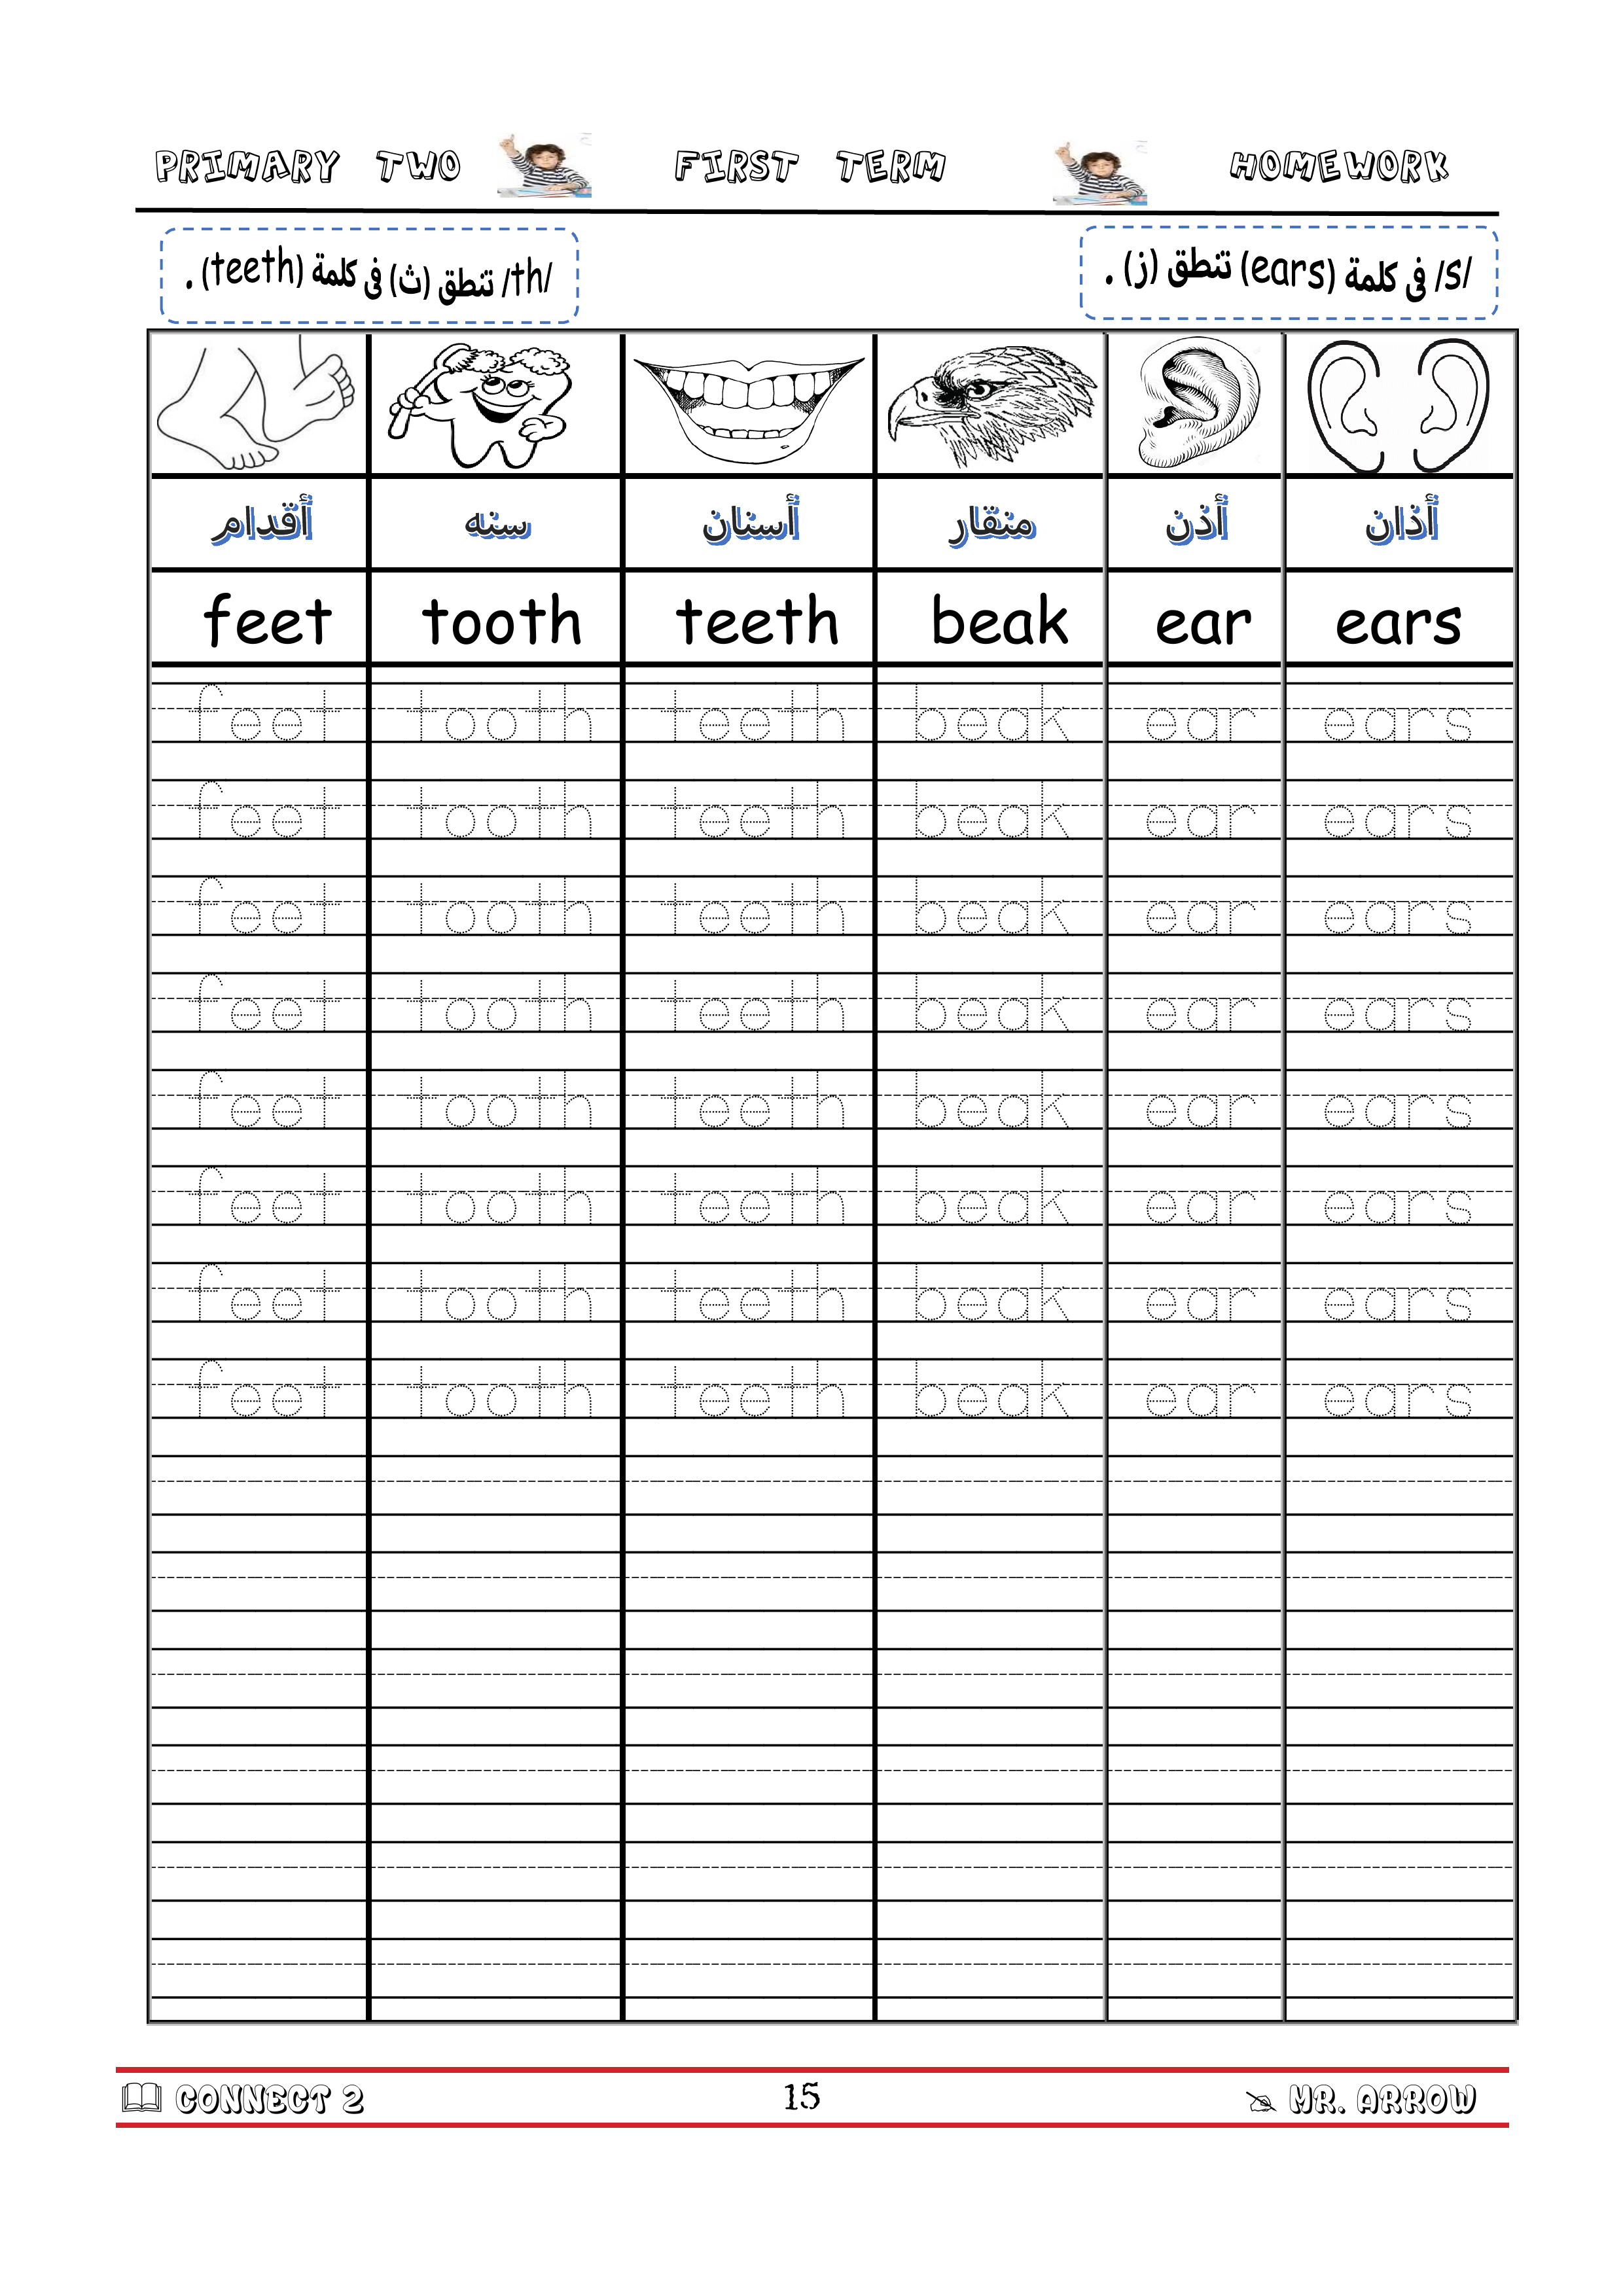 PRIMARY TWO FIRST TERM HOMEWORK
/th/ تنطق (ث) فى كلمة (teeth) .
/s/ فى كلمة (ears) تنطق (ز) .
أقدام سنه أسنان منقار أذن أذان
feet tooth teeth beak ear ears
feet tooth teeth beak ear ears
feet tooth teeth beak ear ears
feet tooth teeth beak ear ears
feet tooth teeth beak ear ears
feet tooth teeth beak ear ears
feet tooth teeth beak ear ears
feet tooth teeth beak ear ears
feet tooth teeth beak ear ears
CONNECT 2 15 MR. ARROW